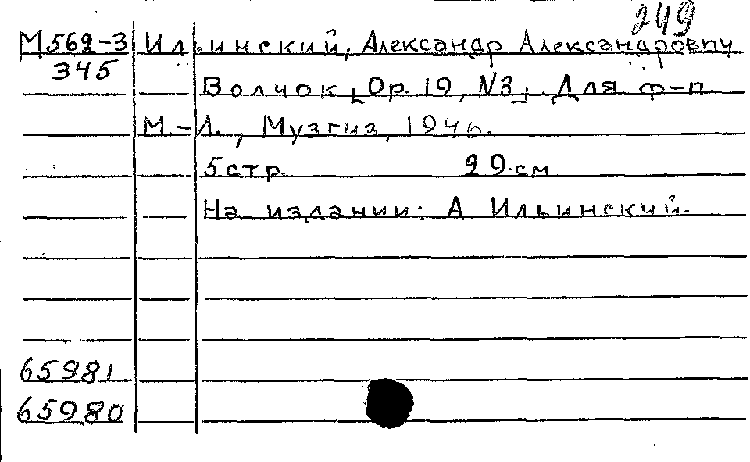 249
М562-3 Ильинский, Александр Александрович
345
Волчок [Ор. 19, N3]. Для ф-п
М.-Л., Музгиз, 1946.
5 стр. 29 см
На издании: А Ильинский.
65981
65980